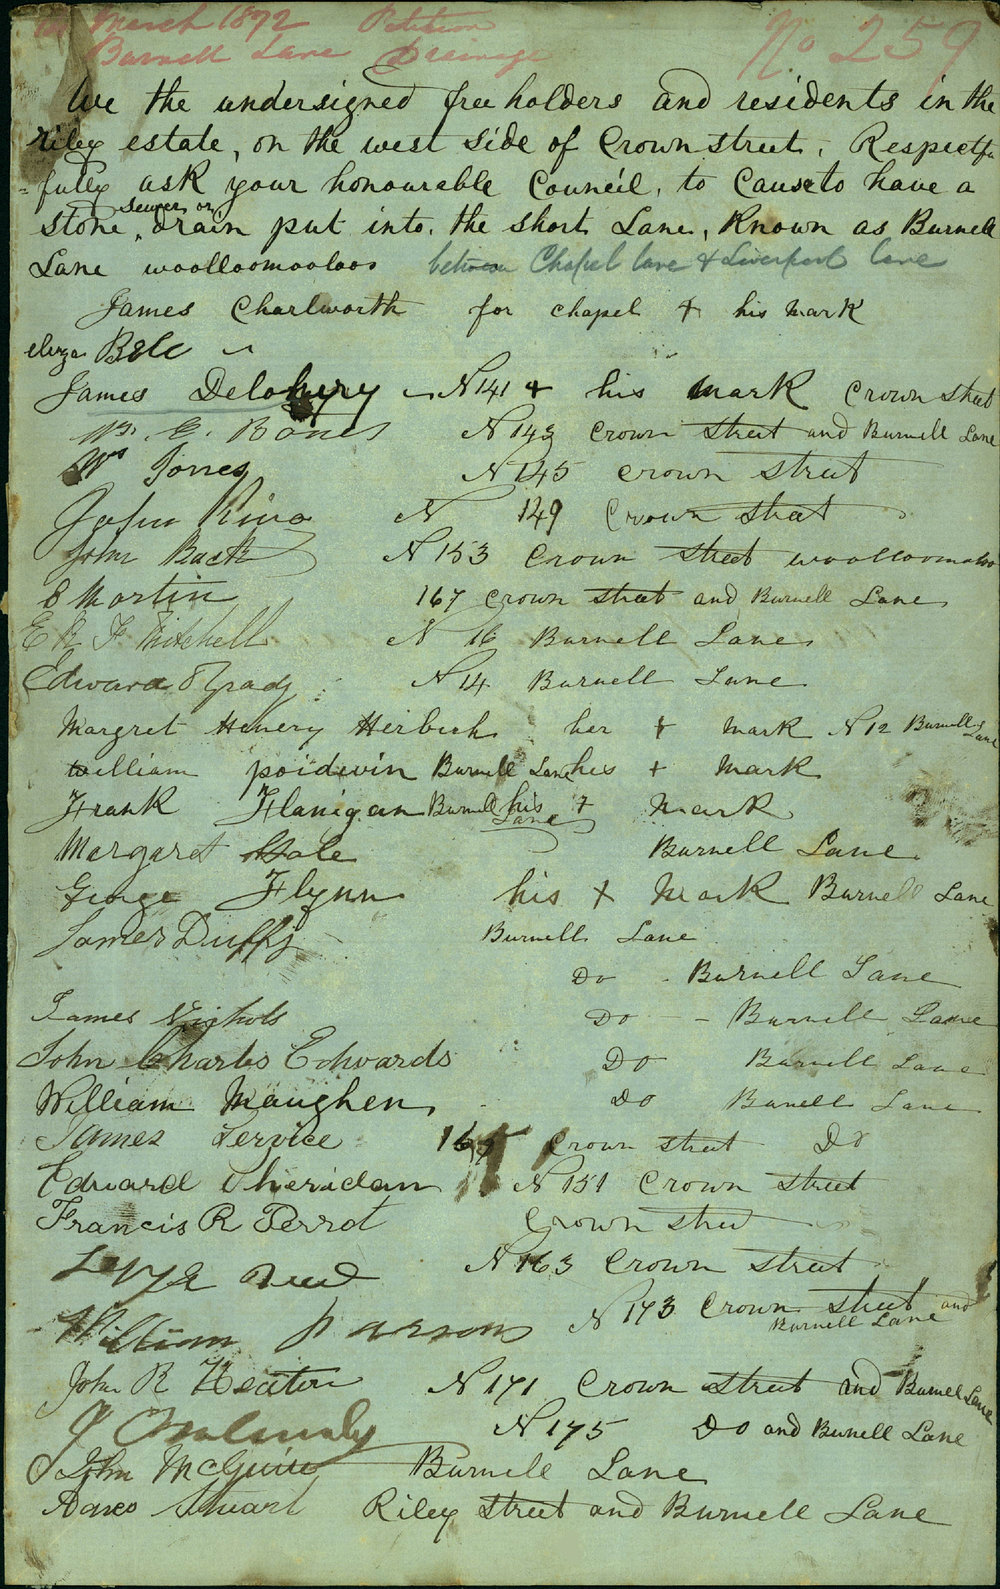 March 1872 Petition
Burnell Lane Drainage
No 259
We the undersigned free holders and residents in the
riley estate, on the west side of Crown street, Respectfu
=fully ask your honourable Council, to Cause to have a
stone, sewer or drain put into, the short Lane, Known as Burnell
Lane woolloomooloo between Chapel lane & Liverpool lane
James Charlworth for chapel + his mark
eliza Bele
James Delohery N 141 + his mark Crown Street
W. E. Bones N 143 Crown Street and Burnell Lane
Wm Jones N 145 Crown Street
John King N 149 Crown Street
John Back N 153 Crown Street woolloomooloo
Martin 167 Crown street and Burnell Lane
E R F Mitchell N 16 Burnell Lane
Edward O Grady N 14 Burnell Lane
Margret Henery her + mark N 12 Burnell Lane
william poidevin Burnell Lane his + mark
Frank Flanigan Burnell Lane his + mark
Margaret Gale Burnell Lane
George Flynn his + Mark Burnell Lane
James Duffy Burnell Lane
Do - Burnell Lane
James Nichols Do - Burnell Lane
John Charles Edwards Do Burnell Lane
William Maughen Do Burnell Lane
James Service 165 Crown street Do
Edward Sheridan N 151 Crown Street
Francis R Perrot Crown Street
N 163 Crown Street
William Parsons N 173 Crown Street and Burnell Lane
John R Heaton N 171 Crown Street and Burnell Lane
N 175 Do and Burnell Lane
John McGuire Burnell Lane
Agnes Stuart Riley Street and Burnell Lane